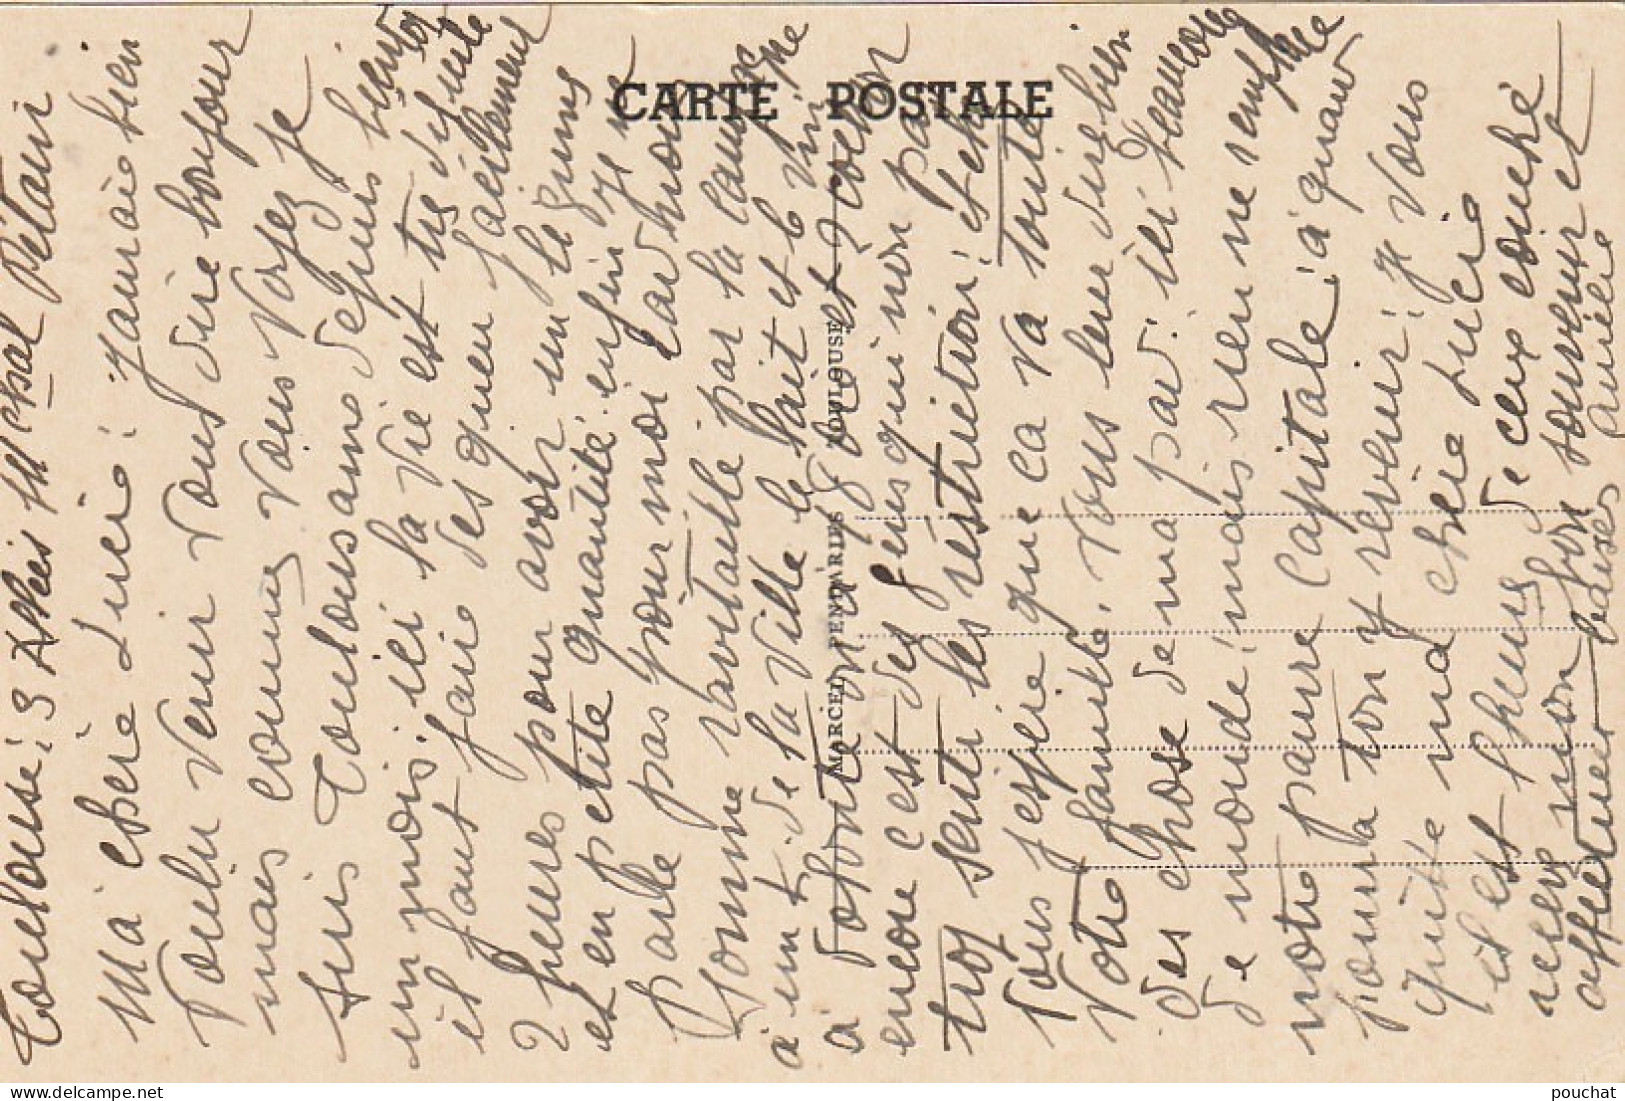 CARTE POSTALE
MARCEL PENDARIES TOULOUSE
Toulouse: 3 Allées Mchsal Pétain
Ma chère Lucie: J'aurais bien
voulu venir vous dire bonjour
mais comme vous voyez je
suis Toulousaine depuis bientôt
un mois. ici la vie est très difficile
il faut faire des queues facilement
2 heures pour avoir un légume
et en petite quantité enfin je ne
parle pas pour moi car nous
somme ravitaillé par la
de la Ville le lait et le vin
à volonté
encore c'est des gens qui non pas
trop senti les réstriction! et chez
vous j'espère que ca va toute
votre famille. Vous leur direz bien
des chose de ma par. ici beaucoup
de monde! mais rien ne remplace
notre pauvre capitale! à quand
pourra ton y revenir! Je vous
quitte ma chère Lucie
il est heures de ceux couché
recevez mon bon souvenir et
affectueux baisers
pouchat